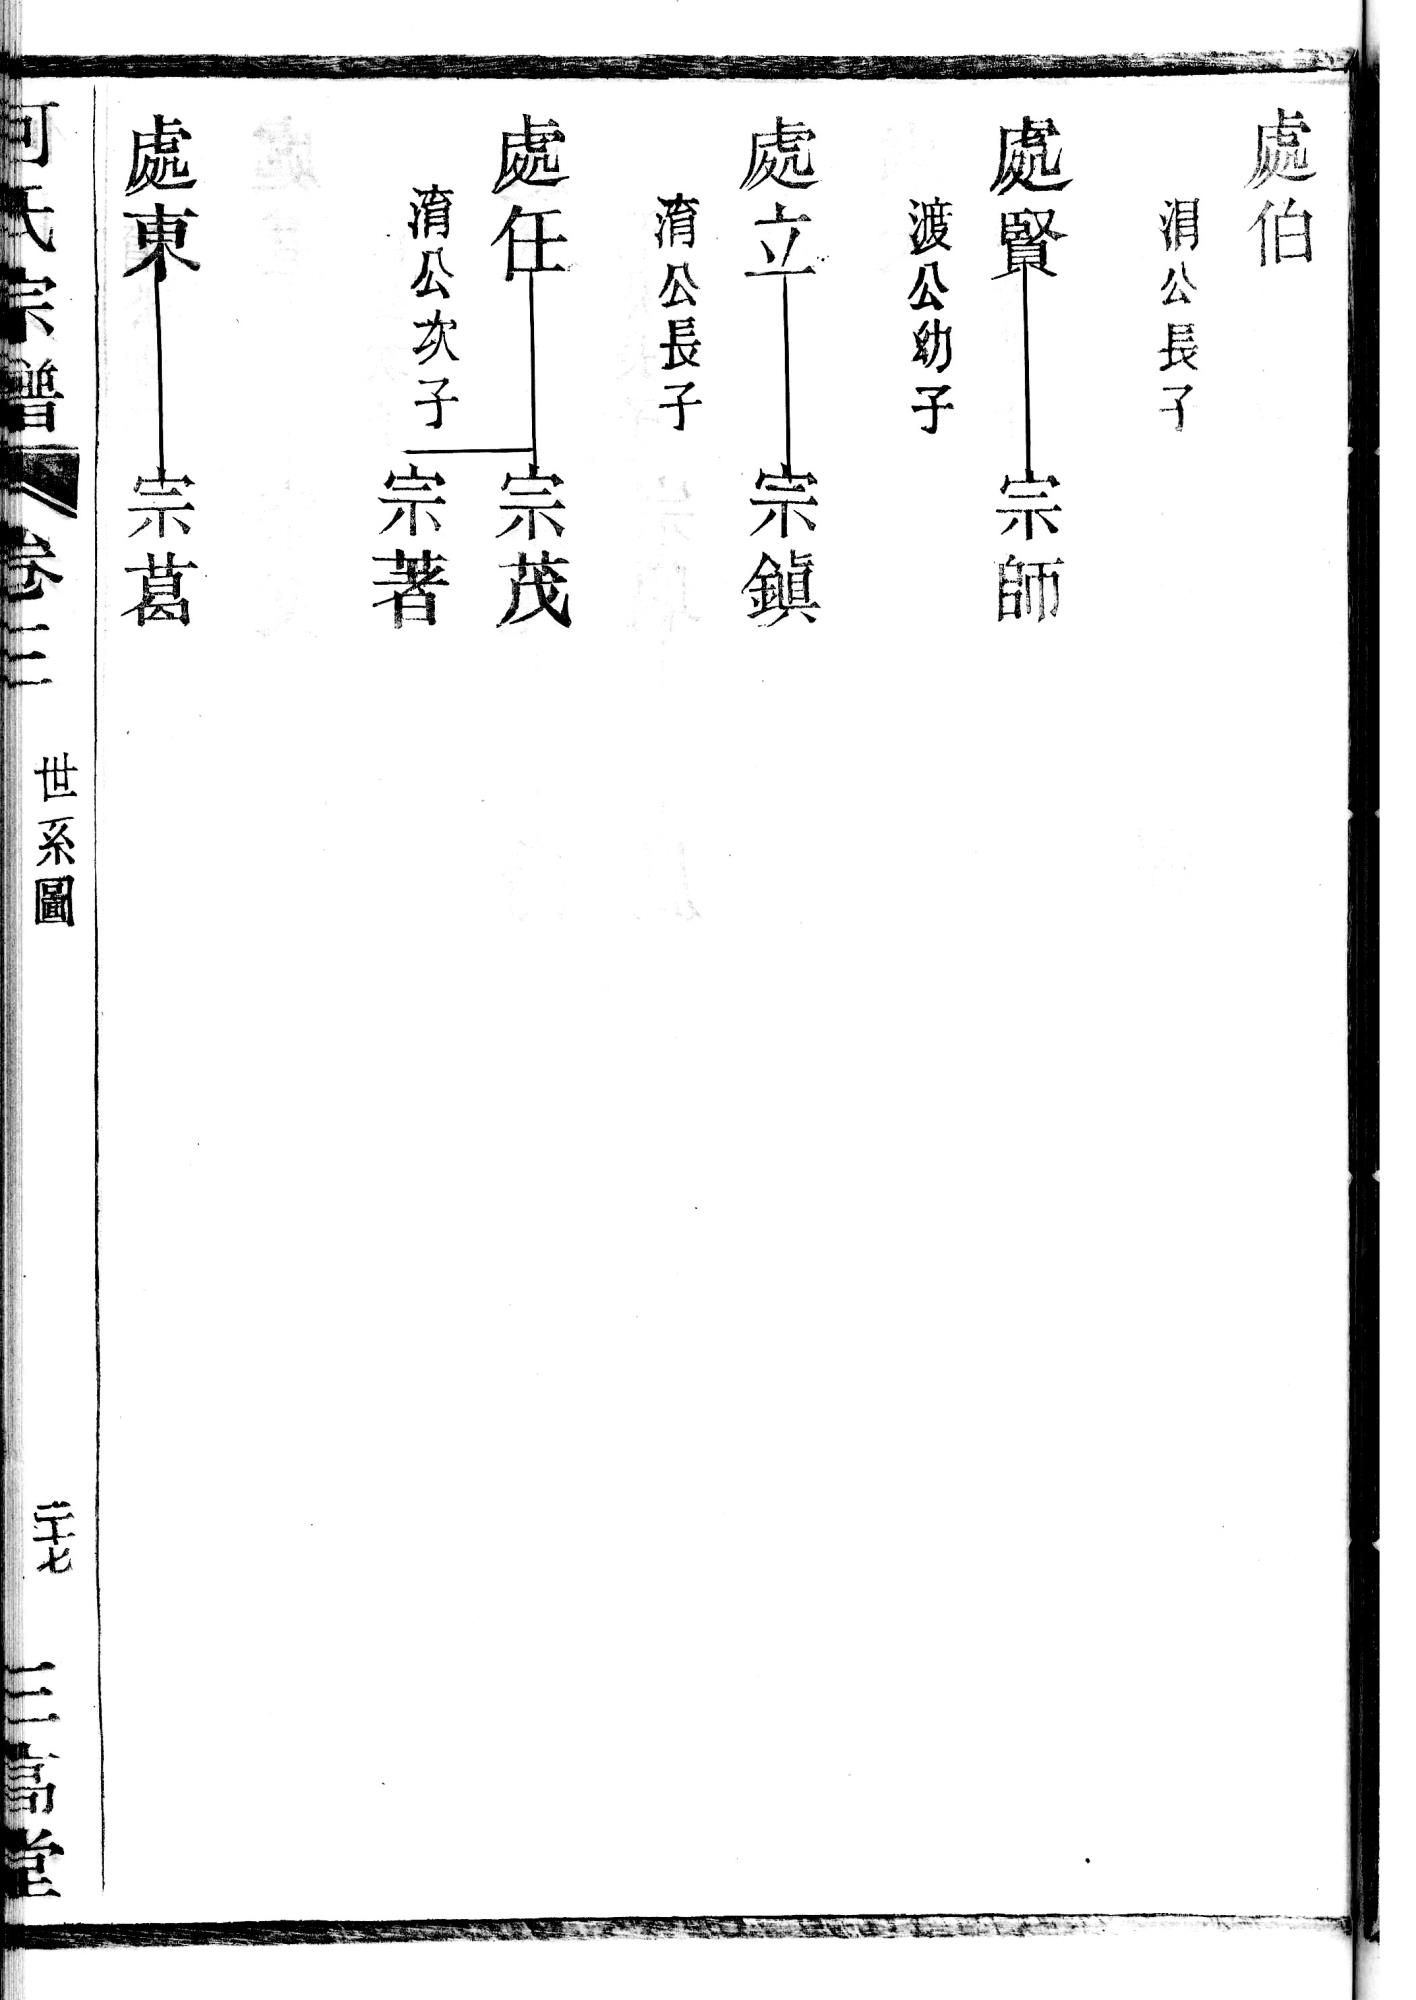 處伯
涓公長子
處賢
宗師
渡公幼子
處立
宗鎭
淯公長子
處任
宗茂
宗著
淯公次子
處東
宗葛
氏宗譜
卷三
世系圖
二十七
三高堂